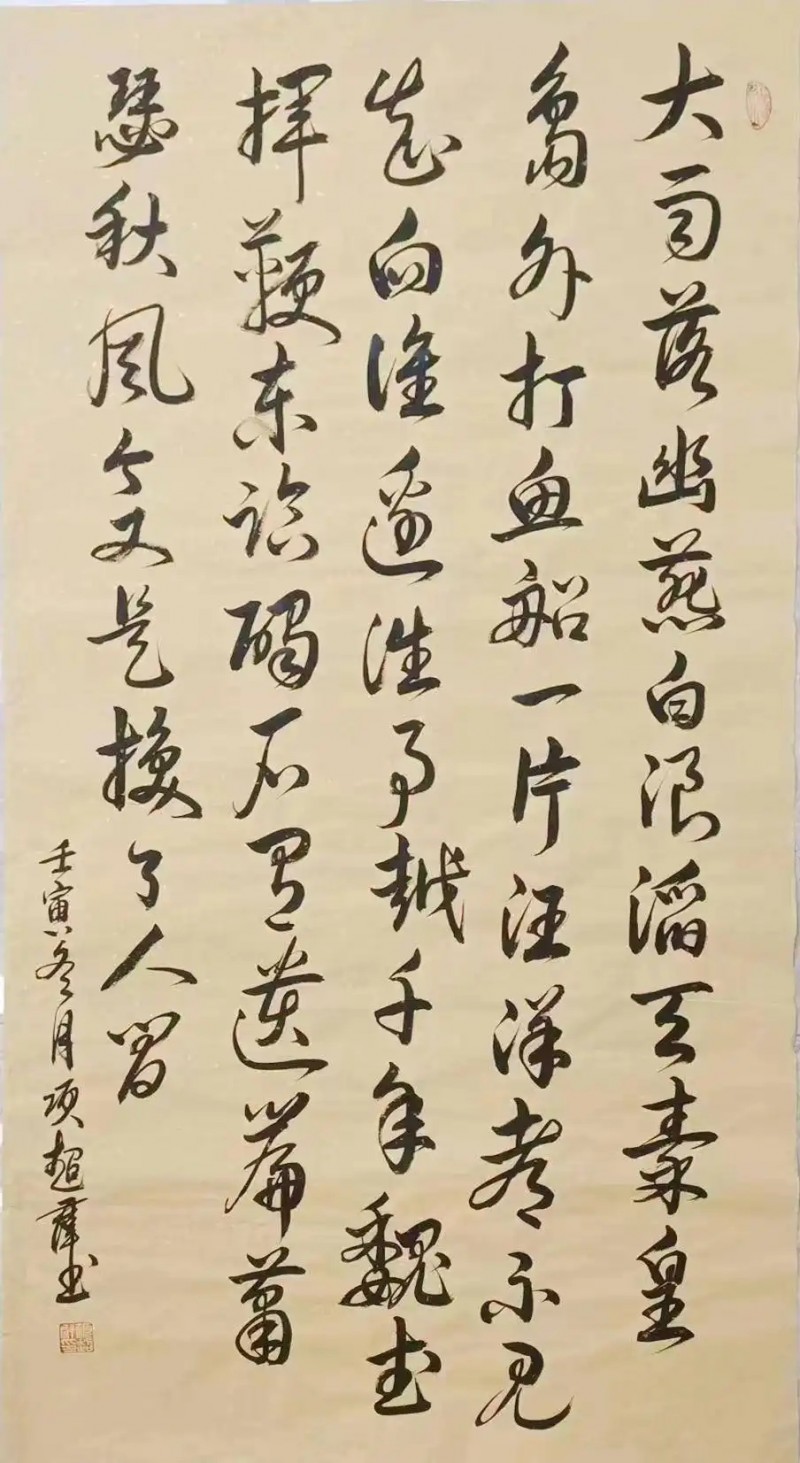 大雨落幽燕白浪滔天秦皇
島外打魚船一片汪洋都不見
知向誰邊往事越千年魏武
揮鞭東臨碣石有遺篇蕭
瑟秋風今又是換了人間
壬寅冬月項超羣書